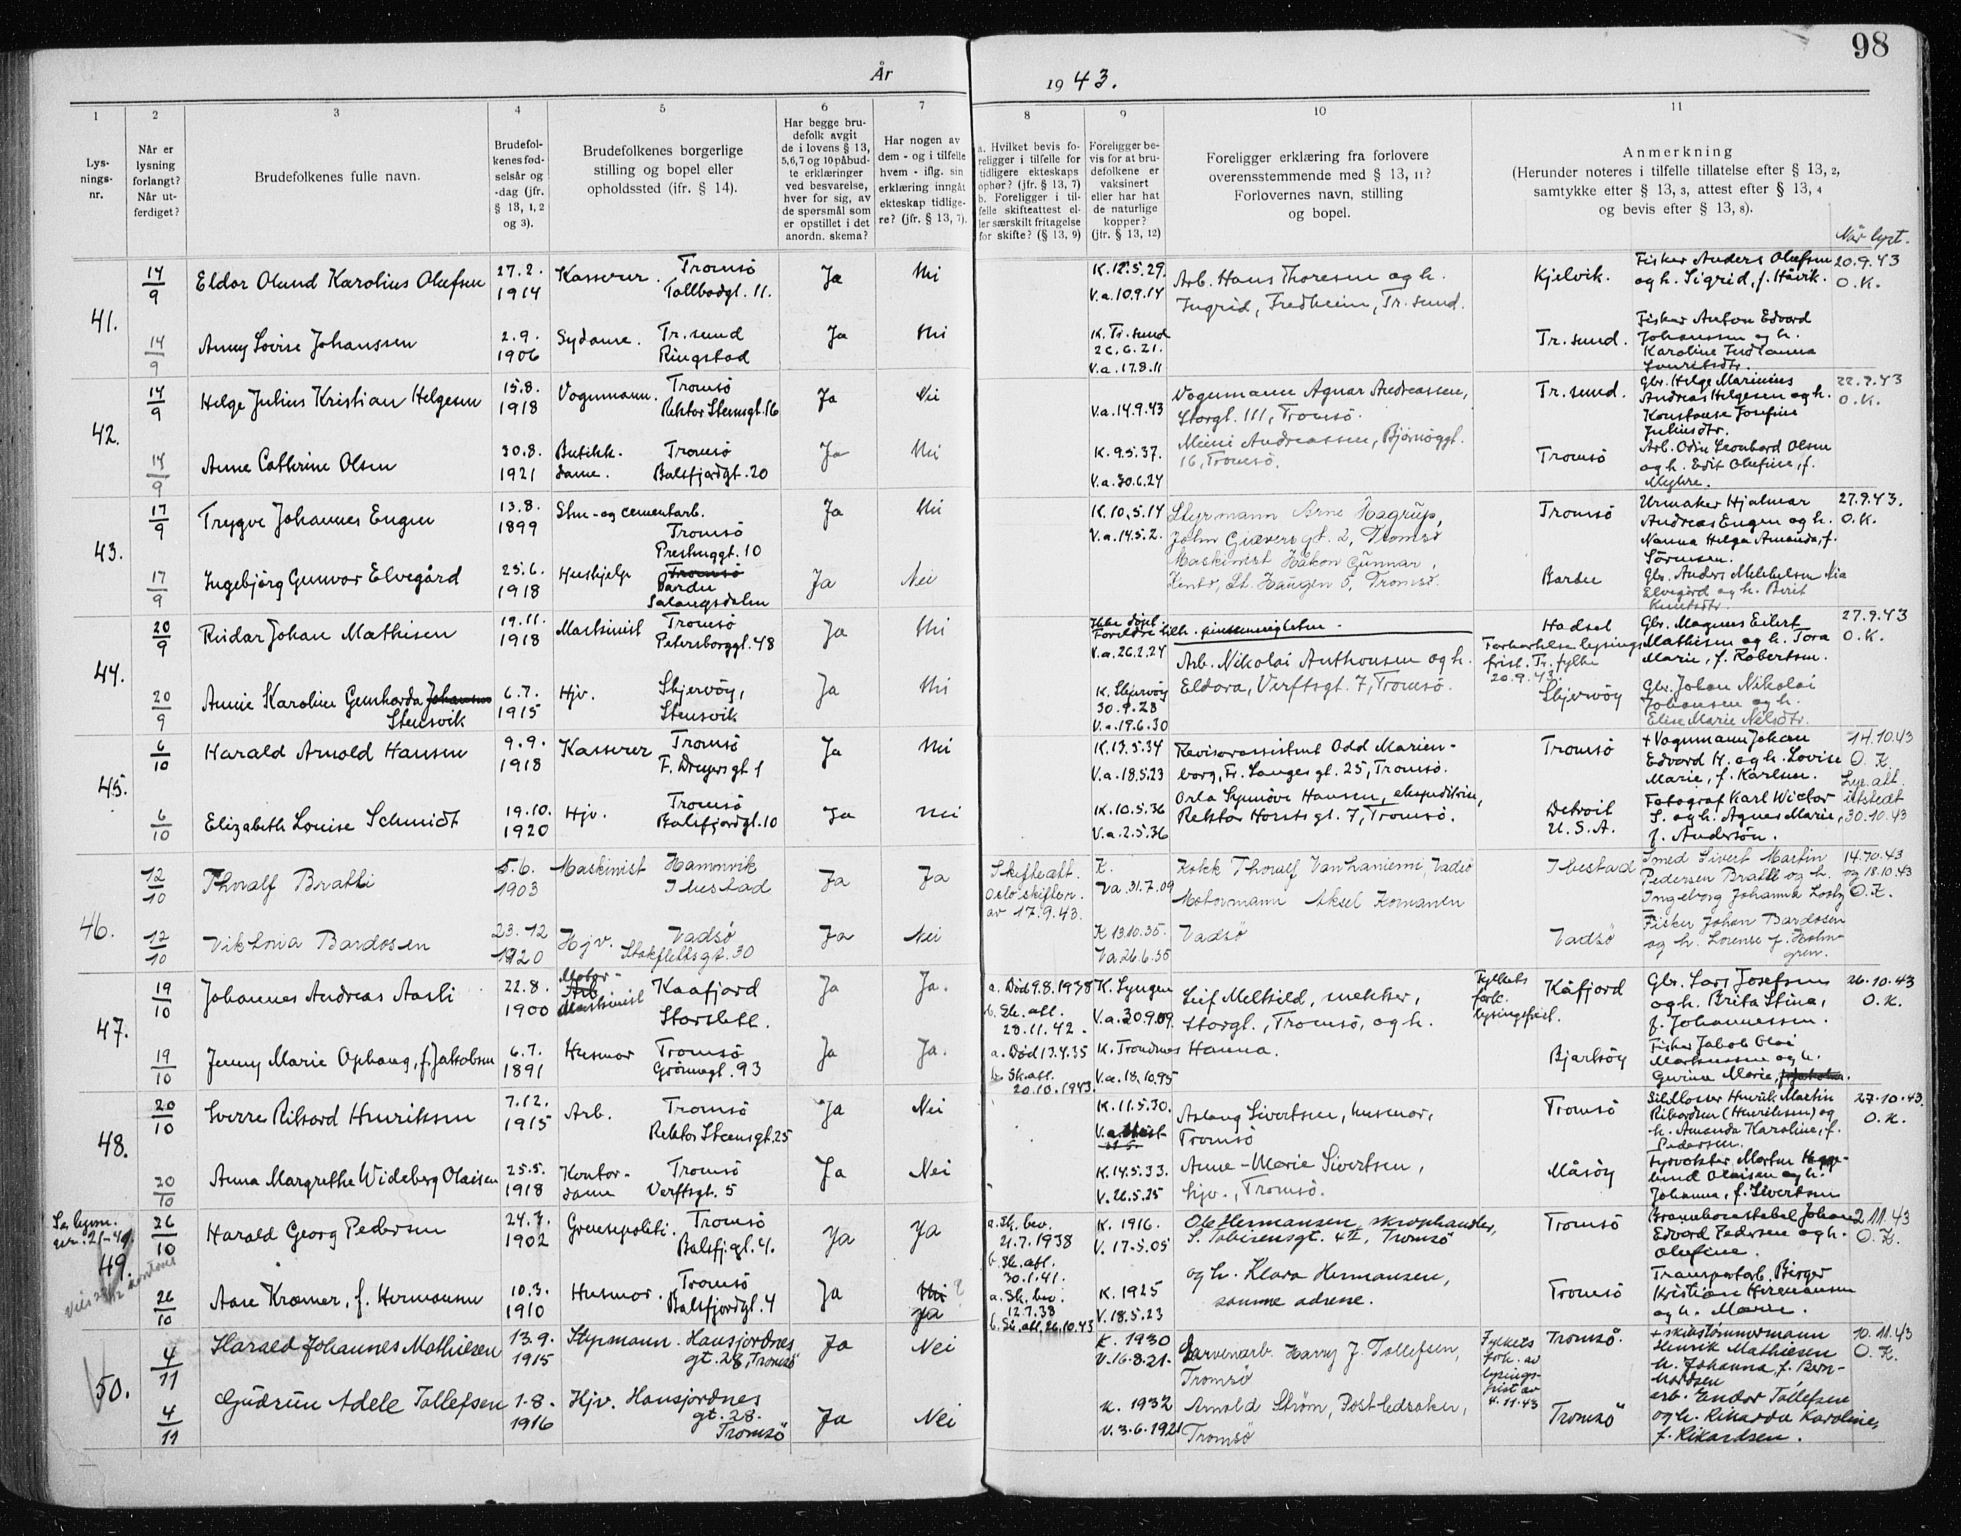 98
År 1943.
1 2 3 4 5 6 7 8 9 10 11
Lys-
nings-
nr.
Når er
lysning
forlangt?
Når ut-
ferdiget?
Brudefolkenes fulle navn.
Brudefol-
kenes fød-
selsår og
-dag (jfr.
§ 13, 1, 2
og 3).
Brudefolkenes borgerlige
stilling og bopel eller
opholdssted (jfr. § 14).
Har begge bru-
defolk avgit
de i lovens § 13,
5, 6, 7 og 10 påbud-
te erklæringer
ved besvarelse,
hver for sig, av
de spørsmål som
er opstillet i det
anordn. skema?
Har nogen av
dem - og i tilfelle
hvem - iflg. sin
erklæring inngått
ekteskap tidlige-
re? (jfr. § 13, 7).
a. Hvilket bevis fo-
religger i tilfelle for
tidligere ekteskaps
ophør? (jfr. § 13, 7)
b. Foreligger i til-
felle skifteattest el-
ler særskilt fritagelse
for skifte? (§ 13, 9)
Foreligger be-
vis for at bru-
defolkene er
vaksinert
eller har hat
de naturlige
kopper?
(jfr. § 13, 12)
Foreligger erklæring fra forlovere
overensstemmende med § 13, 11?
Forlovernes navn, stilling
og bopel.
Anmerkning
(Herunder noteres i tilfelle tillatelse efter § 13, 2,
samtykke efter § 13, 3, attest efter § 13, 4
og bevis efter § 13, 8).
Når lyst.
41.
14/9 Eldor Olund Karolius Olufsen 27.2. 1914 Kasserer. Tromsö Tollbodgt. 11. Ja Nei K. 12.5.29. V.a. 10.9.14 Arb. Hans Thoresen og h. Ingrid, Fredheim, Tr.sund. Kjelvik. Fisker Anders Olufsen og h. Sigrid, f. Håvik. 20.9.43 O.K.
14/9 Anny Lovise Johanssen 2.9. 1906 Sydame. Tr.sund Ringstad Ja Nei K. Tr.sund 26.6.21. V.a. 17.8.11 Tr.sund. Fisker Anton Edvard Johanssen og h. Karoline
42.
14/9 Helge Julius Kristian Helgesen 15.8. 1918 Vognmann. Tromsö Rektor Steensgt. 16 Ja Nei V.a. 14.9.43 Vognmann Agnar Andreassen, Storgt. 111, Tromsö. Tr.sund. Gbr. Helge Marinius Andreas Helgesen og h. Konstanse Josefine Juliusdtr. 22.9.43 O.K.
14/9 Anne Cathrine Olsen 30.8. 1921 Butikk- dame. Tromsö Balsfjordgt. 20 Ja Nei K. 9.5.37. V.a. 30.6.24 Mimi Andreassen, Bjørnöygt. 16, Tromsö. Tromsö Arb. Odin Leonhard Olsen og h. Edit Olufine, f. Myhre.
43.
17/9 Trygve Johannes Engen 13.8. 1899 Sten- og cementarb. Tromsö Prestuggt. 10 Ja Nei K. 10.5.14 V.a. 14.5.2. Styrmann Arne Hagrup, John Giævers gt. 2, Tromsö Tromsö Urmaker Hjalmar Andreas Engen og h. Nanna Helga Amanda, f. Sörensen. 27.9.43. O.K.
17/9 Ingebjörg Gunvor Elvegård 25.6. 1918 Hushjelp Tromsö Bardu Salangsdalen Ja Nei Maskinist Håkon Gunnar, St. Haugen 5, Tromsö. Bardu Gbr. Anders Mikkelsen Elvegård og h. Berit Knutsdtr.
44.
20/9 Reidar Johan Mathisen 19.11. 1918 Maskinist Tromsö Petersborggt. 48 Ja Nei Ikke döpt. Foreldre tilh. pinsemenigheten. V.a. 26.2.24 Arb. Nikolai Anthonsen og h. Hadsel Forkortelse lysings frist. Tr. fylke 20.9.43. Gbr. Magnus Eilert Mathisen og h. Tora Marie, f. Robertsen. 27.9.43 O.K.
20/9 Annie Karoline Gunharda Johansen Stensvik 6.7. 1915 Hjv. Skjervöy, Stensvik Ja Nei K. Skjervöy 30.9.28 V.a. 19.6.30 Eldora, Verftsgt. 7, Tromsö. Skjervöy Gbr. Johan Nikolai Johansen og h. Elise Marie Nilsdtr.
45.
6/10 Harald Arnold Hansen 9.9. 1918 Kasserer Tromsö F. Dreyersgt 1 Ja Nei K. 13.5.34 V.a. 18.5.23 Revisorassistent Odd Marien- borg, Fr. Langes gt. 25, Tromsö. Tromsö + Vognmann Johan Edvard H. og h. Lovise Marie, f. Karlsen. 14.10.43 O.K.
6/10 Elizabeth Louise Schmidt 19.10. 1920 Hjv. Tromsö Balsfjordgt. 10 Ja Nei K. 10.5.36 V.a. 2.5.36 Orla Synnöve Hansen, ekspeditrise, Rektor Horstsgt. 7, Tromsö. Detroit U.S.A. Fotograf Karl Wictor S. og h. Agnes Marie, f. Andersön. Lys.att. utstedt 30.10.43
46.
12/10 Thoralf Brattli 5.6. 1903 Maskinist Hamnvik Ibestad Ja Ja Skifteatt. Oslo skifter. av 17.9.43. K. Va. 31.7.09 Kokk Thoralf Vanhaniemi, Vadsö Ibestad Smed Sivert Martin Pedersen Brattli og h. Ingeborg Johanna 14.10.43 og 18.10.43 O.K.
12/10 Viktoria Bardosen 23.12 1920 Hjv. Vadsö Stokfletsgt. 30 Ja Nei K 13.10.35. Va. 26.6.35 Motormann Aksel Komanen Vadsö Vadsö Fisker Johan Bardosen og h. Lorense f. Holm- gren.
47.
19/10 Johannes Andreas Aasli 22.8. 1900 Motor- Arb. Maskinist Kaafjord Storslett. Ja Ja. a. Död 9.8.1938 b. Sk.att. 28.11.42. K. Lyngen V.a. 30.9.09. Leif Meltsild, snekker, Storgt., Tromsö, og h. Fylkets fork. lysingsfrist. Kåfjord Gbr. Lars Josefsen og h. Brita Stina, f. Johannessen. 26.10.43 O.K.
19/10 Jenny Marie Ophaug, f. Jakobsen 6.7. 1891 Husmor Tromsö Grönnegt. 93 Ja Ja. a. Död 13.4.35 b. Sk.att. 20.10.1943 K. Trondenes V.a. 18.10.95 Hanna. Bjarköy Fisker Jakob Olai Markussen og h. Gurine Marie,
48.
20/10 Sverre Rikard Henriksen 7.12. 1915 Arb. Tromsö Rektor Steensgt. 25 Ja Nei K. 11.5.30. Aslaug Sivertsen, husmor, Tromsö Tromsö Sildloser Henrik Martin Rikardsen (Henriksen) og h. Amanda Karoline, f. Pedersen. 27.10.43. O.K.
20/10 Anna Margrethe Wideberg Olaisen 25.5. 1918 Kontor- dame Tromsö Verftsgt. 5 Ja Nei K. 14.5.33. V. 26.5.25 Anne-Marie Sivertsen, hjv., Tromsö. Måsöy Fyrvokter Morten og h. Johanna, f. Sivertsen
Se lysn. nr. 21-49.
49.
26/10 Harald Georg Pedersen 24.7. 1902 Grensepoliti. Tromsö Balsfj.gt. 4. Ja Ja a. Sk. bev. 21.7.1938 b. Sk.att. 30.1.41. K. 1916. V. 17.5.05 Ole Hermansen, skraphandler, S. Tobiesensgt. 4 II, Tromsö Tromsö Brannkonstabel Johan Edvard Pedersen og h. Olufine. 2.11.43 O.K.
26/10 Aase Kræmer, f. Hermansen 10.3. 1910 Husmor. Tromsö Balsfjordgt. 4 Ja Nei? Ja a. Sk. bev. 12.7.38 b. Sk.att. 26.10.43 K. 1925 V. 18.5.23 og h. Klara Hermansen, samme adresse. Tromsö Transportarb. Birger Kristian Hermansen og h. Marie.
50.
4/11 Harald Johannes Mathiesen 13.9. 1915 Styrmann. Hansjordnes gt. 28, Tromsö Ja Nei K. 1930 V. 16-8-21. Garverarb. Harry J. Tollefsen, Tromsö Fylkets fork. av lysings- frist av 4.11.43 Tromsö. + skibstömmermann Henrik Mathiesen h. Johanna, f. Bern- hardsen 10.11.43 O.K.
4/11 Gudrun Adele Tollefsen 1-8. 1916 Hjv. Hansjordnes gt. 28. Tromsö Ja Nei K. 1932 V. 3-6-1921 Arnold Ström, Postledsaker, Tromsö Tromsö arb. Endor Tollefsen og h. Rikarda Karoline, f. Rikardsen.